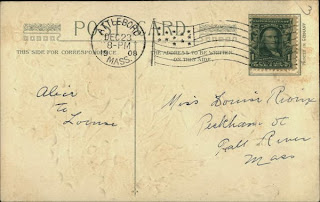 POST CARD
THIS SIDE FOR CORRESPONDENCE
THE ADDRESS TO BE WRITTEN
ON THIS SIDE.
ATTLEBORO
DEC 23
8-PM
1906
MASS.
Alice
to
Louise
Miss Louise Rioux
Peckham St
Fall River
Mass